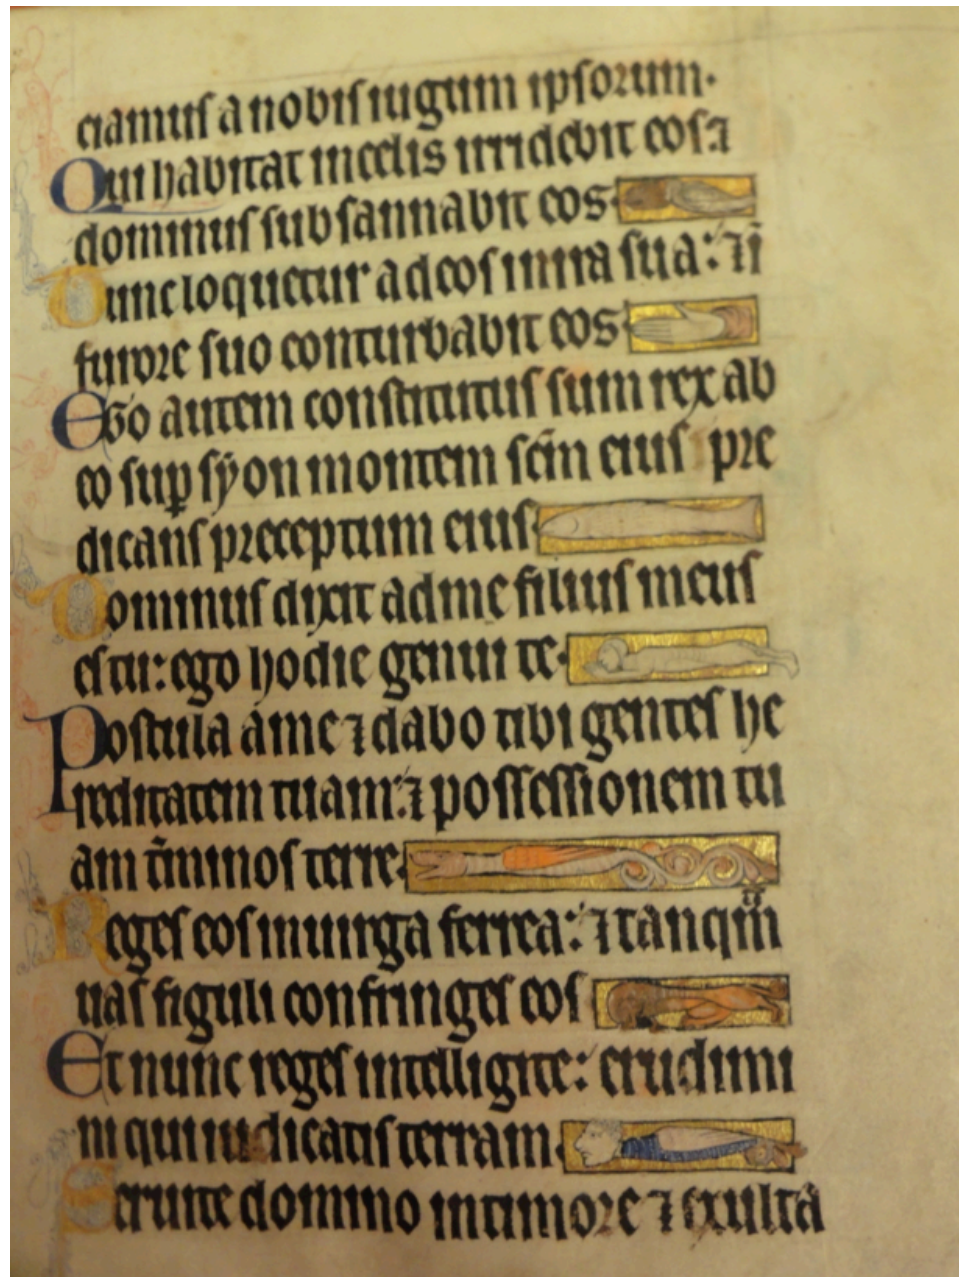 ciamus a nobis iugum ipsorum.
Qui habitat in celis irridebit eos: ⁊
dominus subsannabit eos.
Tunc loquetur ad eos in ira sua: ⁊ ī
furore suo conturbabit eos.
Ego autem constitutus sum rex ab
eo suꝑ sẏon montem scm̄ eius pre
dicans preceptum eius.
Dominus dixit ad me filius meus
es tu: ego hodie genui te.
Postula a me ⁊ dabo tibi gentes he
reditatem tuam: ⁊ possessionem tu
am t̄minos terre.
Reges eos in uirga ferrea: ⁊ tanqm̄
uas figuli confringes eos
Et nunc reges intelligite: erudimi
ni qui iudicatis terram.
Seruite domino in timore ⁊ exultā